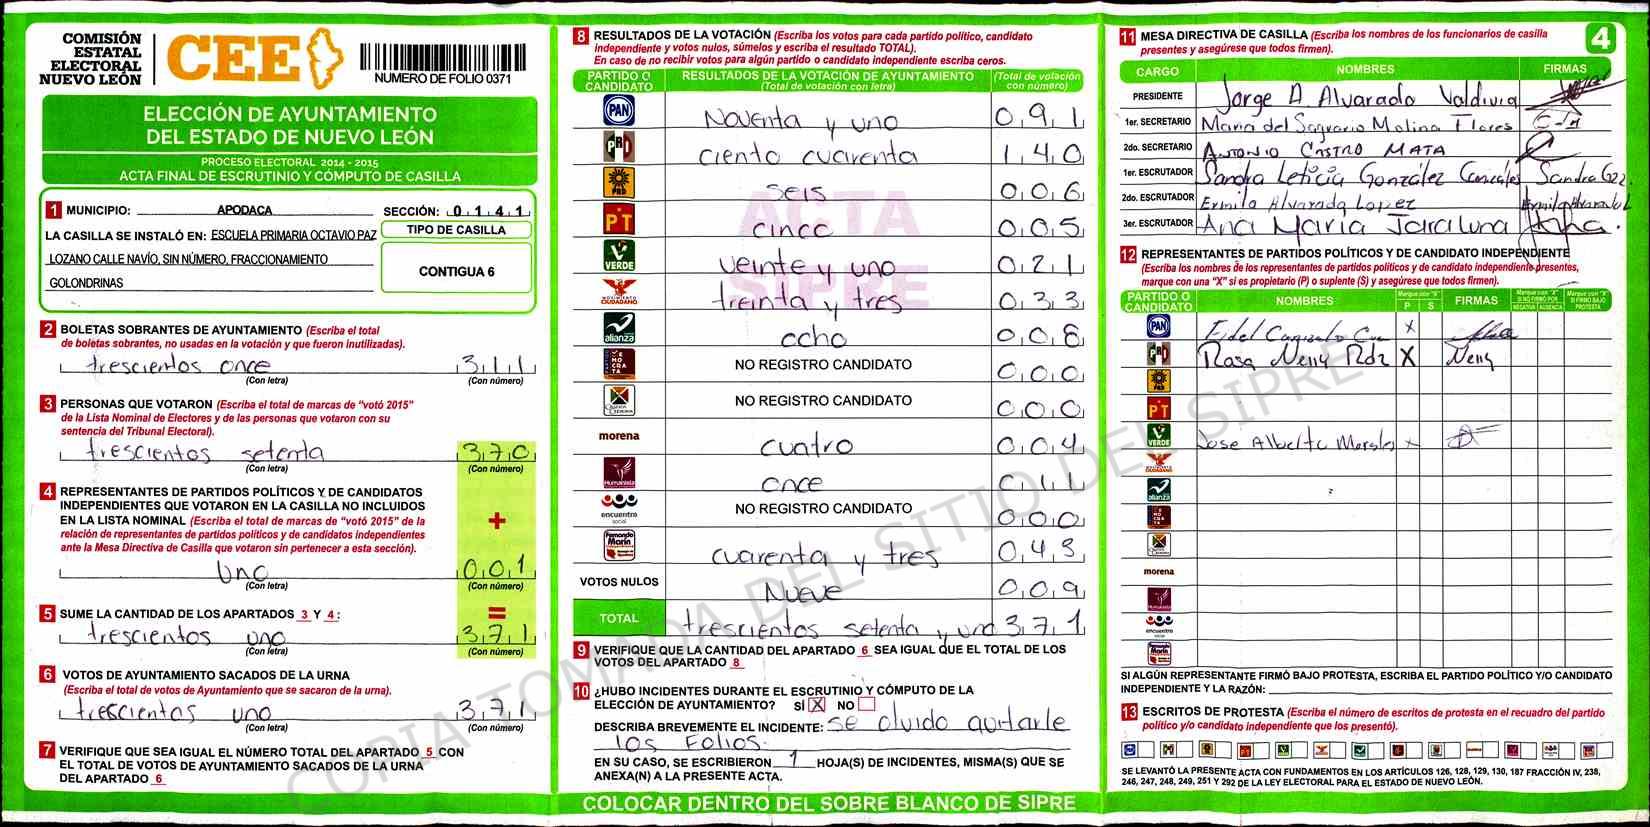 COMISIÓN
ESTATAL
ELECTORAL
NUEVO LEÓN
CEE
NUMERO DE FOLIO 0371
ELECCIÓN DE AYUNTAMIENTO
DEL ESTADO DE NUEVO LEÓN
PROCESO ELECTORAL 2014 - 2015
ACTA FINAL DE ESCRUTINIO Y CÓMPUTO DE CASILLA
1 MUNICIPIO: APODACA SECCIÓN: 0 1 4 1
LA CASILLA SE INSTALÓ EN: ESCUELA PRIMARIA OCTAVIO PAZ
LOZANO CALLE NAVÍO, SIN NÚMERO, FRACCIONAMIENTO
GOLONDRINAS
TIPO DE CASILLA
CONTIGUA 6
2 BOLETAS SOBRANTES DE AYUNTAMIENTO (Escriba el total
de boletas sobrantes, no usadas en la votación y que fueron inutilizadas).
trescientos once 3 1 1
(Con letra) (Con número)
3 PERSONAS QUE VOTARON (Escriba el total de marcas de "votó 2015"
de la Lista Nominal de Electores y de las personas que votaron con su
sentencia del Tribunal Electoral).
trescientos setenta 3 7 0
(Con letra) (Con número)
4 REPRESENTANTES DE PARTIDOS POLÍTICOS Y DE CANDIDATOS
INDEPENDIENTES QUE VOTARON EN LA CASILLA NO INCLUIDOS
EN LA LISTA NOMINAL (Escriba el total de marcas de "votó 2015" de la
relación de representantes de partidos políticos y de candidatos independientes
ante la Mesa Directiva de Casilla que votaron sin pertenecer a esta sección).
+
Uno 0 0 1
(Con letra) (Con número)
5 SUME LA CANTIDAD DE LOS APARTADOS 3 Y 4 : =
trescientos uno 3 7 1
(Con letra) (Con número)
6 VOTOS DE AYUNTAMIENTO SACADOS DE LA URNA
(Escriba el total de votos de Ayuntamiento que se sacaron de la urna).
trescientos uno 3 7 1
(Con letra) (Con número)
7 VERIFIQUE QUE SEA IGUAL EL NÚMERO TOTAL DEL APARTADO 5 CON
EL TOTAL DE VOTOS DE AYUNTAMIENTO SACADOS DE LA URNA
DEL APARTADO 6
8 RESULTADOS DE LA VOTACIÓN (Escriba los votos para cada partido político, candidato
independiente y votos nulos, súmelos y escriba el resultado TOTAL).
En caso de no recibir votos para algún partido o candidato independiente escriba ceros.
PARTIDO O CANDIDATO RESULTADOS DE LA VOTACIÓN DE AYUNTAMIENTO (Total de votación con letra) (Total de votación con número)
PAN Noventa y uno 0 9 1
PRI ciento cuarenta 1 4 0
PRD seis 0 0 6
PT cinco 0 0 5
VERDE veinte y uno 0 2 1
MOVIMIENTO CIUDADANO treinta y tres 0 3 3
alianza ocho 0 0 8
DEMOCRATA NO REGISTRO CANDIDATO 0 0 0
NO REGISTRO CANDIDATO 0 0 0
morena cuatro 0 0 4
Humanista once 0 1 1
encuentro social NO REGISTRO CANDIDATO 0 0 0
Fernando Marín cuarenta y tres 0 4 3
VOTOS NULOS Nueve 0 0 9
TOTAL trescientos setenta y uno 3 7 1
ACTA
SIPRE
9 VERIFIQUE QUE LA CANTIDAD DEL APARTADO 6 SEA IGUAL QUE EL TOTAL DE LOS
VOTOS DEL APARTADO 8
10 ¿HUBO INCIDENTES DURANTE EL ESCRUTINIO Y CÓMPUTO DE LA
ELECCIÓN DE AYUNTAMIENTO? SÍ X NO
DESCRIBA BREVEMENTE EL INCIDENTE: se olvido quitarle
los Folios.
EN SU CASO, SE ESCRIBIERON 1 HOJA(S) DE INCIDENTES, MISMA(S) QUE SE
ANEXA(N) A LA PRESENTE ACTA.
COLOCAR DENTRO DEL SOBRE BLANCO DE SIPRE
11 MESA DIRECTIVA DE CASILLA (Escriba los nombres de los funcionarios de casilla
presentes y asegúrese que todos firmen).
4
CARGO NOMBRES FIRMAS
PRESIDENTE Jorge A. Alvarado Valdivia
1er. SECRETARIO Maria del Sagrario Molina Flores
2do. SECRETARIO ANTONIO CASTRO MATA
1er. ESCRUTADOR Sandra Leticia González Canizales Sandra Gzz.
2do. ESCRUTADOR Ermilo Alvarado Lopez Ermilo Alvarado L
3er. ESCRUTADOR Ana María Jara Luna
12 REPRESENTANTES DE PARTIDOS POLÍTICOS Y DE CANDIDATO INDEPENDIENTE
(Escriba los nombres de los representantes de partidos políticos y de candidato independiente presentes,
marque con una "X" si es propietario (P) o suplente (S) y asegúrese que todos firmen).
PARTIDO O CANDIDATO NOMBRES Marque con "X" P S FIRMAS Marque con "X" SI NO FIRMÓ POR NEGATIVA AUSENCIA Marque con "X" SI FIRMÓ BAJO PROTESTA
PAN Fidel X
PRI Rosa Neny Rdz X Neny
PRD
PT
VERDE Jose Alberto Morales x
MOVIMIENTO CIUDADANO
alianza
DEMOCRATA
morena
Humanista
encuentro social
Fernando Marín
SI ALGÚN REPRESENTANTE FIRMÓ BAJO PROTESTA, ESCRIBA EL PARTIDO POLÍTICO Y/O CANDIDATO
INDEPENDIENTE Y LA RAZÓN:
13 ESCRITOS DE PROTESTA (Escriba el número de escritos de protesta en el recuadro del partido
político y/o candidato independiente que los presentó).
SE LEVANTÓ LA PRESENTE ACTA CON FUNDAMENTOS EN LOS ARTÍCULOS 126, 128, 129, 130, 187 FRACCIÓN IV, 238,
246, 247, 248, 249, 251 Y 292 DE LA LEY ELECTORAL PARA EL ESTADO DE NUEVO LEÓN.
COPIA TOMADA DEL SITIO DEL SIPRE